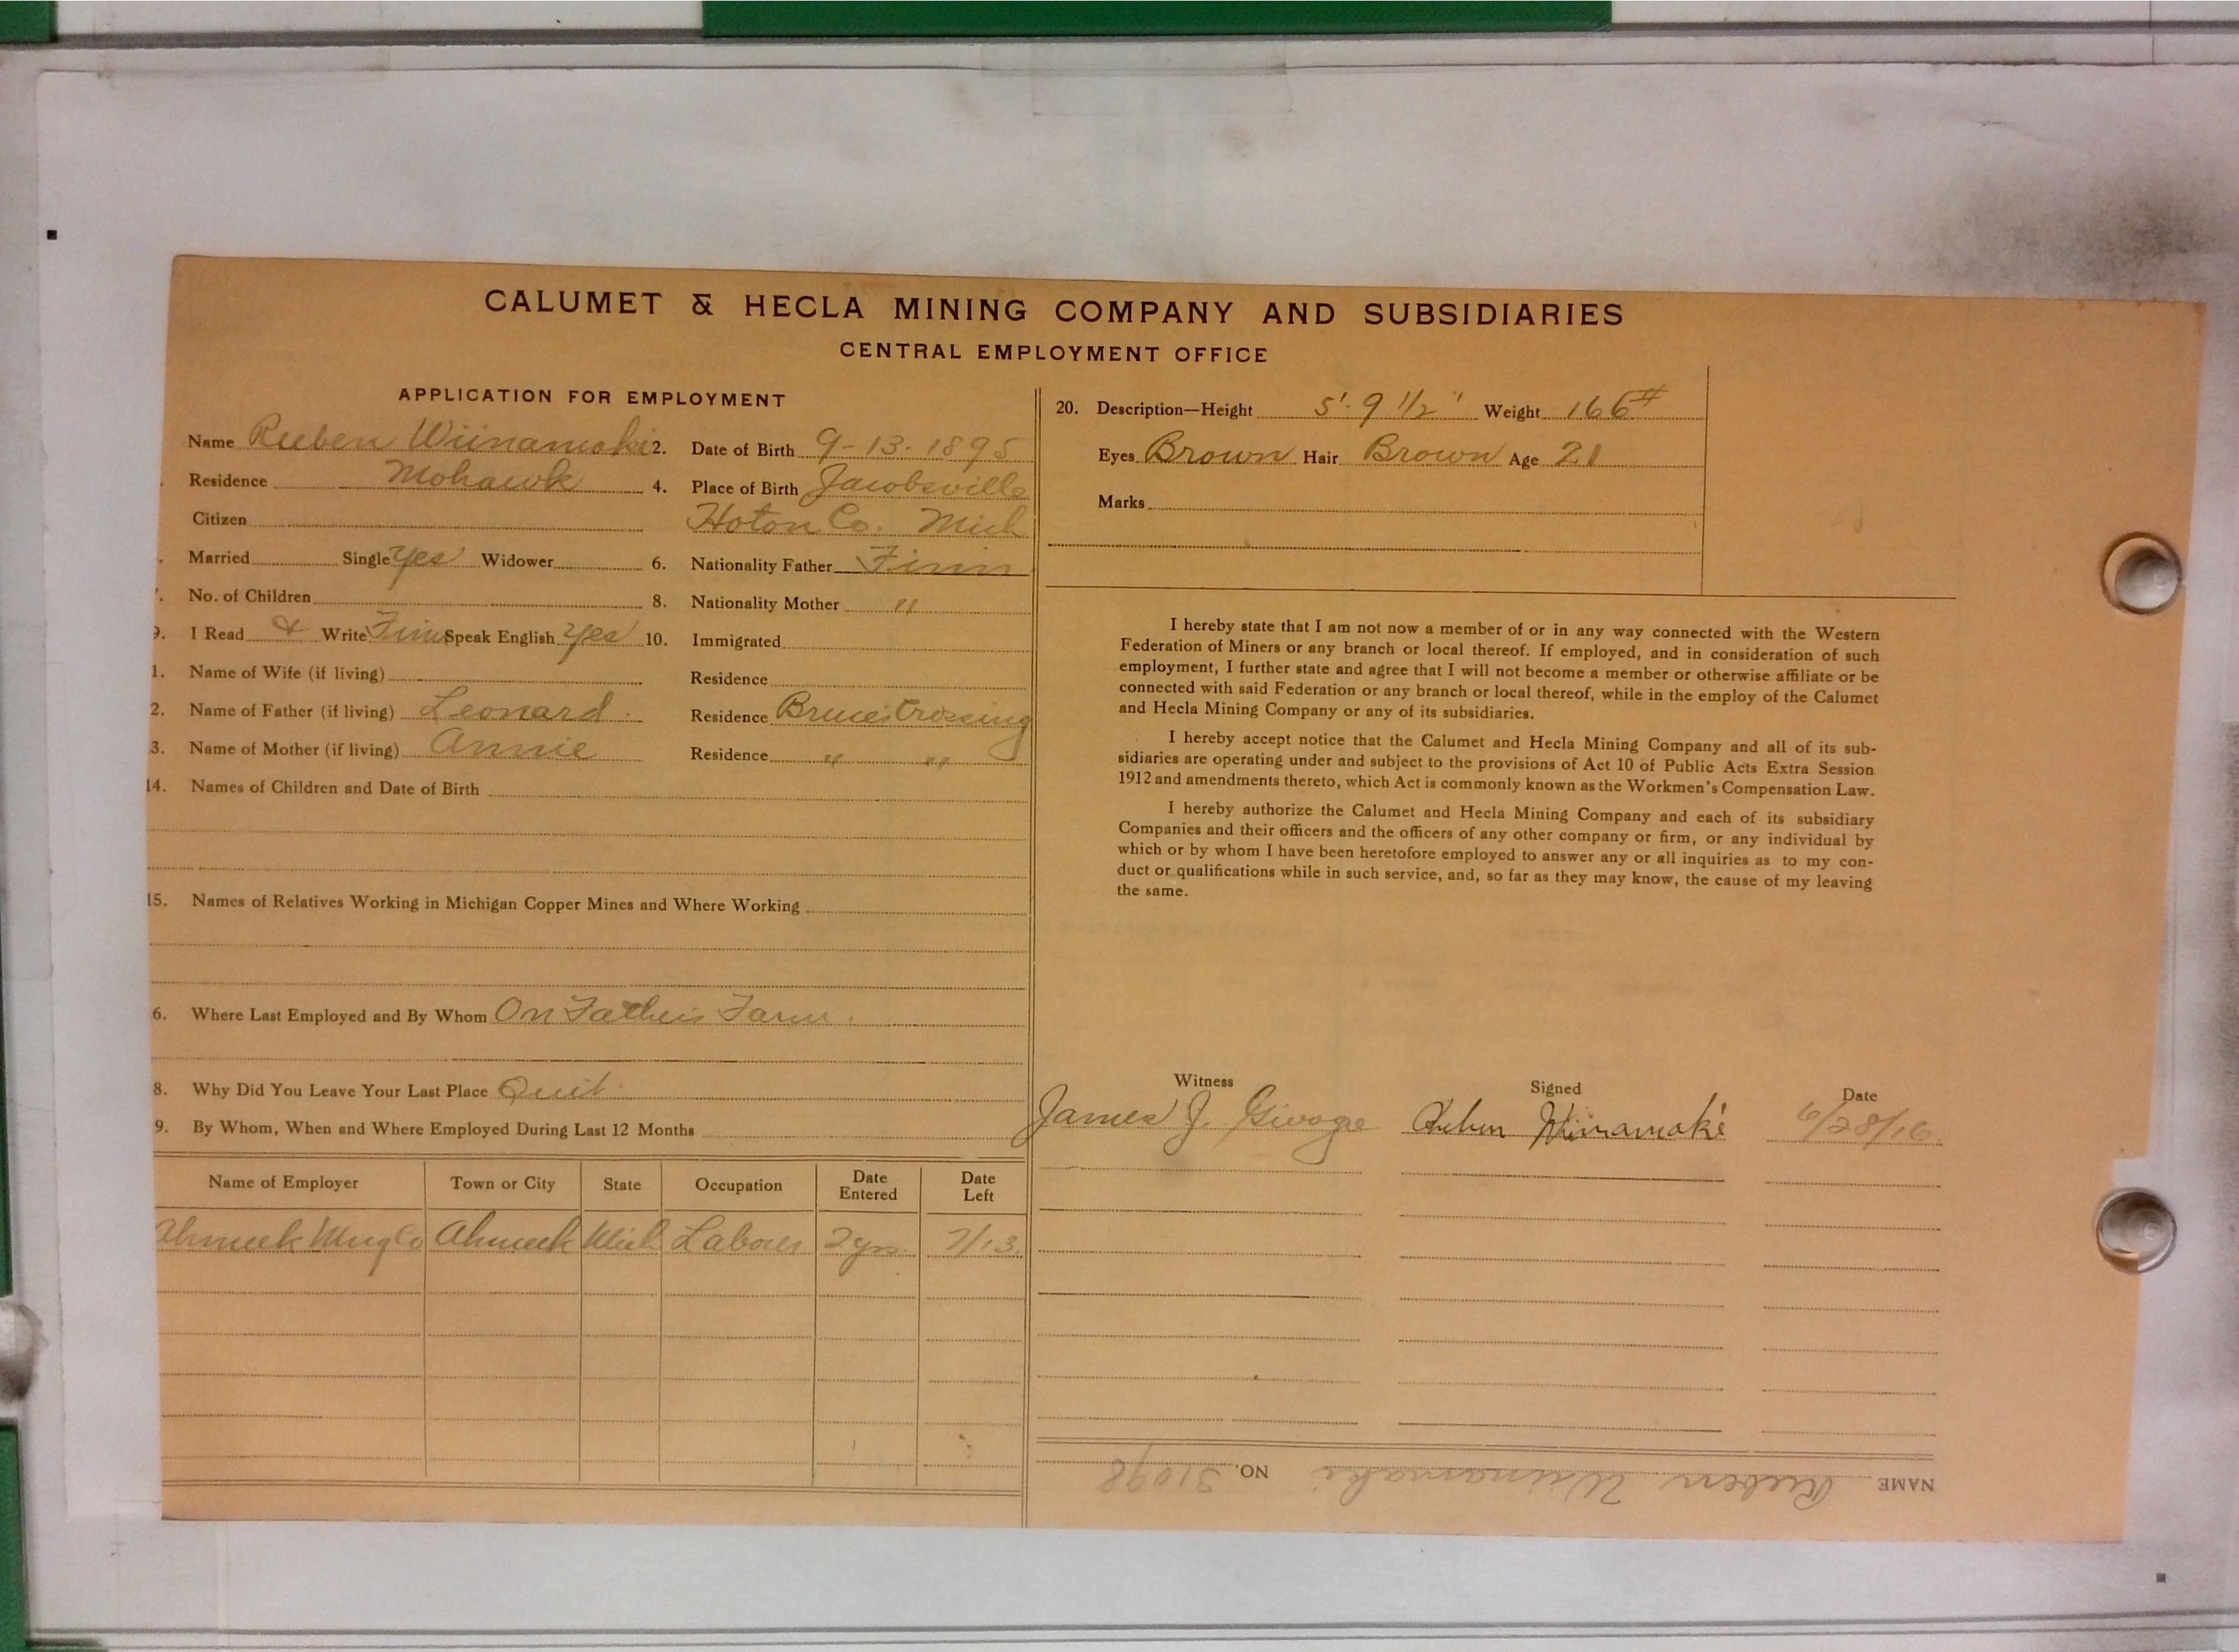 CALUMET & HECLA MINING COMPANY AND SUBSIDIARIES
CENTRAL EMPLOYMENT OFFICE
APPLICATION FOR EMPLOYMENT
Name Rueben Wiinamaki 2. Date of Birth 9-13-1895
Residence Mohawk 4. Place of Birth Jacobsville
Citizen Hoton Co. Mich
Married Single Yes Widower 6. Nationality Father Finn
No. of Children 8. Nationality Mother "
9. I Read & Write Finn Speak English Yes 10. Immigrated
1. Name of Wife (if living) Residence
2. Name of Father (if living) Leonard Residence Bruces Crossing
3. Name of Mother (if living) Annie Residence " "
14. Names of Children and Date of Birth
15. Names of Relatives Working in Michigan Copper Mines and Where Working
6. Where Last Employed and By Whom On Fathers Farm.
8. Why Did You Leave Your Last Place Quit
9. By Whom, When and Where Employed During Last 12 Months
Name of Employer Town or City State Occupation Date Entered Date Left
Ahmeek Mng Co Ahmeek Mich Laborer 2 yrs. 7/13
20. Description—Height 5'-9 1/2" Weight 166#
Eyes Brown Hair Brown Age 21
Marks
I hereby state that I am not now a member of or in any way connected with the Western
Federation of Miners or any branch or local thereof. If employed, and in consideration of such
employment, I further state and agree that I will not become a member or otherwise affiliate or be
connected with said Federation or any branch or local thereof, while in the employ of the Calumet
and Hecla Mining Company or any of its subsidiaries.
I hereby accept notice that the Calumet and Hecla Mining Company and all of its sub-
sidiaries are operating under and subject to the provisions of Act 10 of Public Acts Extra Session
1912 and amendments thereto, which Act is commonly known as the Workmen's Compensation Law.
I hereby authorize the Calumet and Hecla Mining Company and each of its subsidiary
Companies and their officers and the officers of any other company or firm, or any individual by
which or by whom I have been heretofore employed to answer any or all inquiries as to my con-
duct or qualifications while in such service, and, so far as they may know, the cause of my leaving
the same.
Witness Signed Date
James J. Wiinamaki 6/28/16
NAME Rueben Wiinamaki NO. 31098